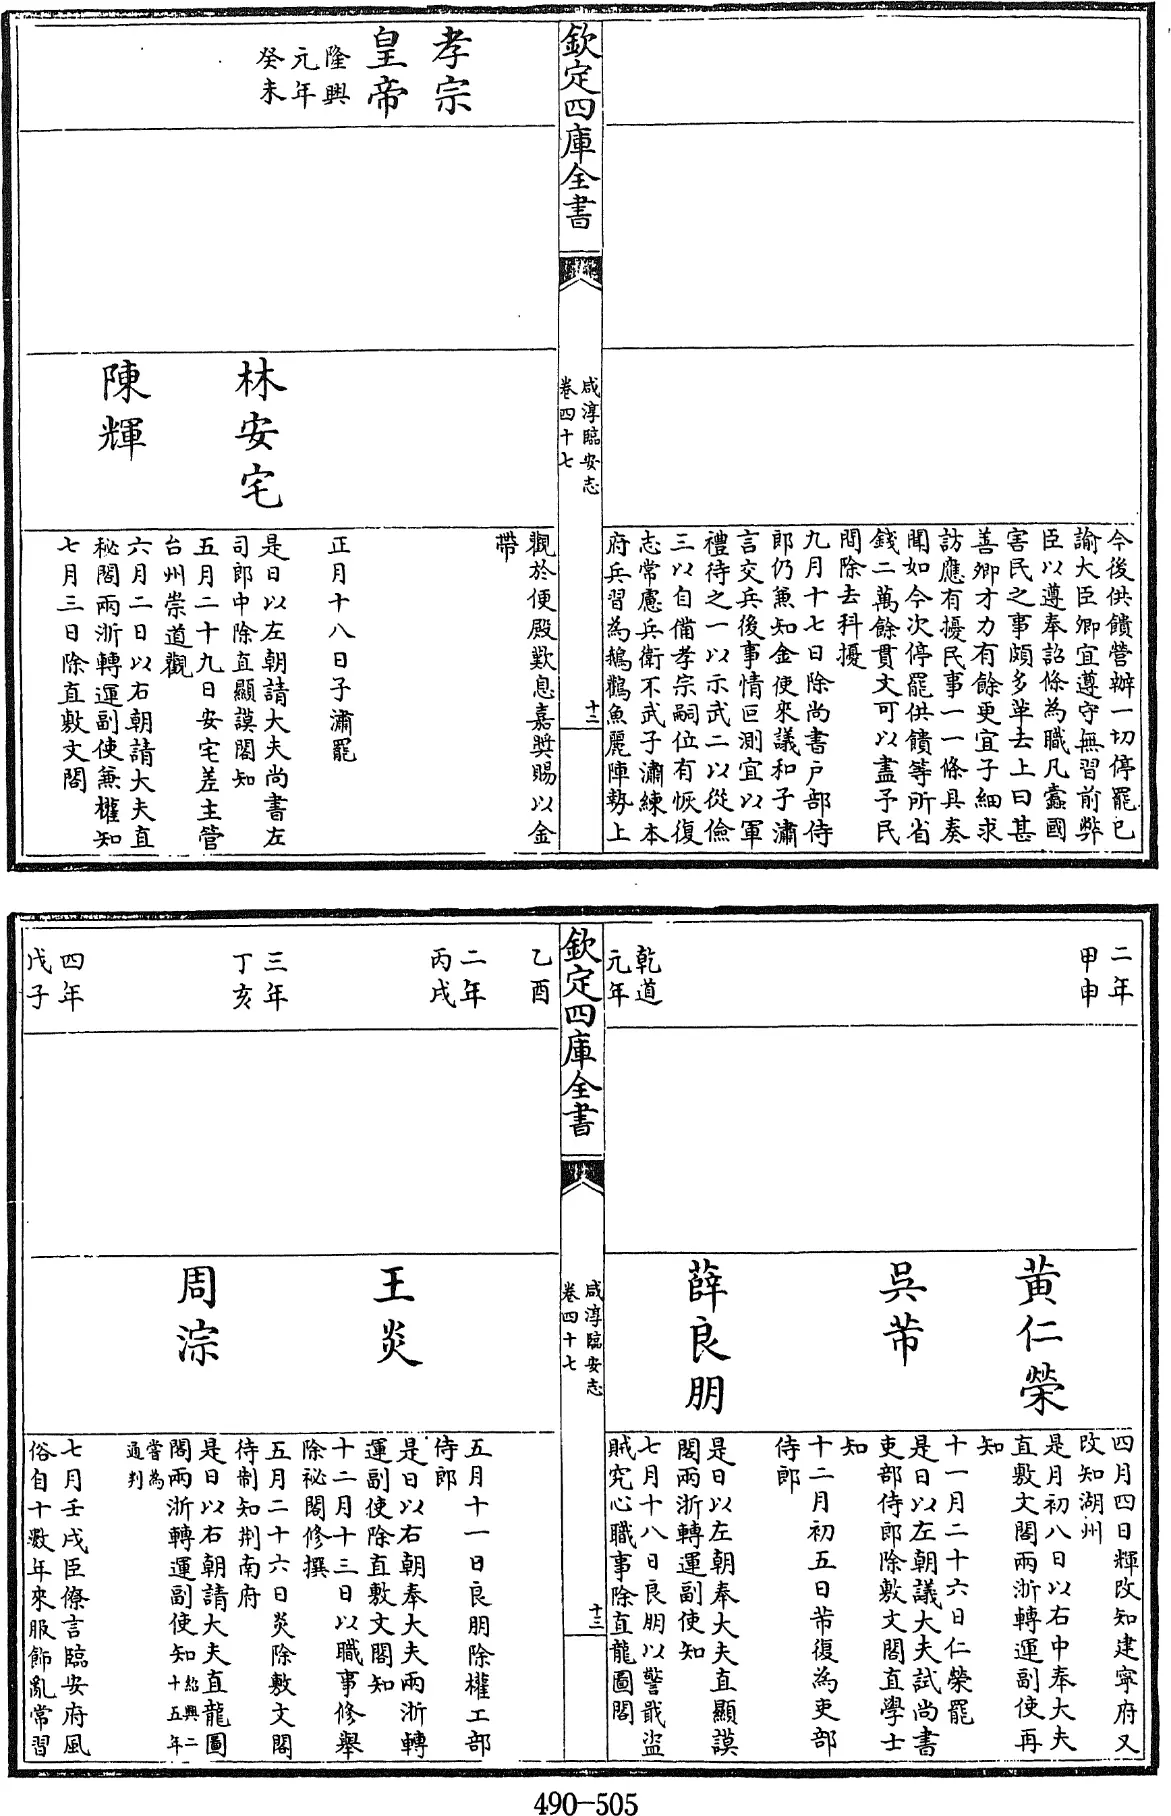 今後供饋營辦一切停罷已
諭大臣卿宜遵守無習前弊
臣以遵奉詔條為職凡蠧國
害民之事頗多革去上曰甚
善卿才力有餘更宜子細求
訪應有擾民事一一條具奏
聞如今次停罷供饋等所省
錢二萬餘貫文可以盡予民
間除去科擾
九月十七日除尚書户部侍
郎仍兼知金使來議和子潚
言交兵後事情叵測宜以軍
禮待之一以示武二以從儉
三以自備孝宗嗣位有恢復
志常慮兵衛不武子潚練本
府兵習為鵝鸛魚麗陣勢上
欽定四庫全書
咸淳臨安志
卷四十七
十二
觀於便殿歎息嘉奬賜以金
帶
孝宗
皇帝
隆興
元年
癸未
正月十八日子潚罷
林安宅
是日以左朝請大夫尚書左
司郎中除直顯謨閣知
五月二十九日安宅差主管
台州崇道觀
陳輝
六月二日以右朝請大夫直
秘閣兩浙轉運副使兼權知
七月三日除直敷文閣
二年
甲申
四月四日輝改知建寧府又
改知湖州
黄仁榮
是月初八日以右中奉大夫
直敷文閣兩浙轉運副使再
知
十一月二十六日仁榮罷
吳芾
是日以左朝議大夫試尚書
吏部侍郎除敷文閣直學士
知
十二月初五日芾復為吏部
侍郎
薛良朋
是日以左朝奉大夫直顯謨
閣兩浙轉運副使知
乾道
元年
七月十八日良朋以警戢盜
賊究心職事除直龍圖閣
欽定四庫全書
咸淳臨安志
卷四十七
十三
乙酉
二年
丙戌
五月十一日良朋除權工部
侍郎
王炎
是日以右朝奉大夫兩浙轉
運副使除直敷文閣知
十二月十三日以職事修舉
除祕閣修撰
三年
丁亥
五月二十六日炎除敷文閣
待制知荆南府
周淙
是日以右朝請大夫直龍圖
閣兩浙轉運副使知紹興二
十五年
嘗為
通判
四年
戊子
七月壬戌臣僚言臨安府風
俗自十數年來服飾亂常習
490-505